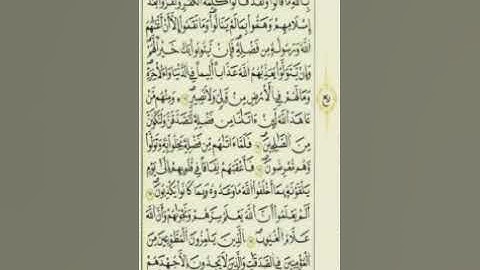 بِٱللَّهِ مَا قَالُوا۟ وَلَقَدْ قَالُوا۟ كَلِمَةَ ٱلْكُفْرِ وَكَفَرُوا۟ بَعْدَ
إِسْلَٰمِهِمْ وَهَمُّوا۟ بِمَا لَمْ يَنَالُوا۟ وَمَا نَقَمُوٓا۟ إِلَّآ أَنْ أَغْنَىٰهُمُ
ٱللَّهُ وَرَسُولُهُۥ مِن فَضْلِهِۦ فَإِن يَتُوبُوا۟ يَكُ خَيْرًا لَّهُمْ
وَإِن يَتَوَلَّوْا۟ يُعَذِّبْهُمُ ٱللَّهُ عَذَابًا أَلِيمًا فِى ٱلدُّنْيَا وَٱلْءَاخِرَةِ
وَمَا لَهُمْ فِى ٱلْأَرْضِ مِن وَلِىٍّ وَلَا نَصِيرٍ وَمِنْهُم مَّنْ
عَٰهَدَ ٱللَّهَ لَئِنْ ءَاتَىٰنَا مِن فَضْلِهِۦ لَنَصَّدَّقَنَّ وَلَنَكُونَنَّ
مِنَ ٱلصَّٰلِحِينَ فَلَمَّآ ءَاتَىٰهُم مِّن فَضْلِهِۦ بَخِلُوا۟ بِهِۦ وَتَوَلَّوا۟
وَّهُم مُّعْرِضُونَ فَأَعْقَبَهُمْ نِفَاقًا فِى قُلُوبِهِمْ إِلَىٰ يَوْمِ
يَلْقَوْنَهُۥ بِمَآ أَخْلَفُوا۟ ٱللَّهَ مَا وَعَدُوهُ وَبِمَا كَانُوا۟ يَكْذِبُونَ
أَلَمْ يَعْلَمُوٓا۟ أَنَّ ٱللَّهَ يَعْلَمُ سِرَّهُمْ وَنَجْوَىٰهُمْ وَأَنَّ ٱللَّهَ
عَلَّٰمُ ٱلْغُيُوبِ ٱلَّذِينَ يَلْمِزُونَ ٱلْمُطَّوِّعِينَ مِنَ
ٱلْمُؤْمِنِينَ فِى ٱلصَّدَقَٰتِ وَٱلَّذِينَ لَا يَجِدُونَ إِلَّا جُهْدَهُمْ